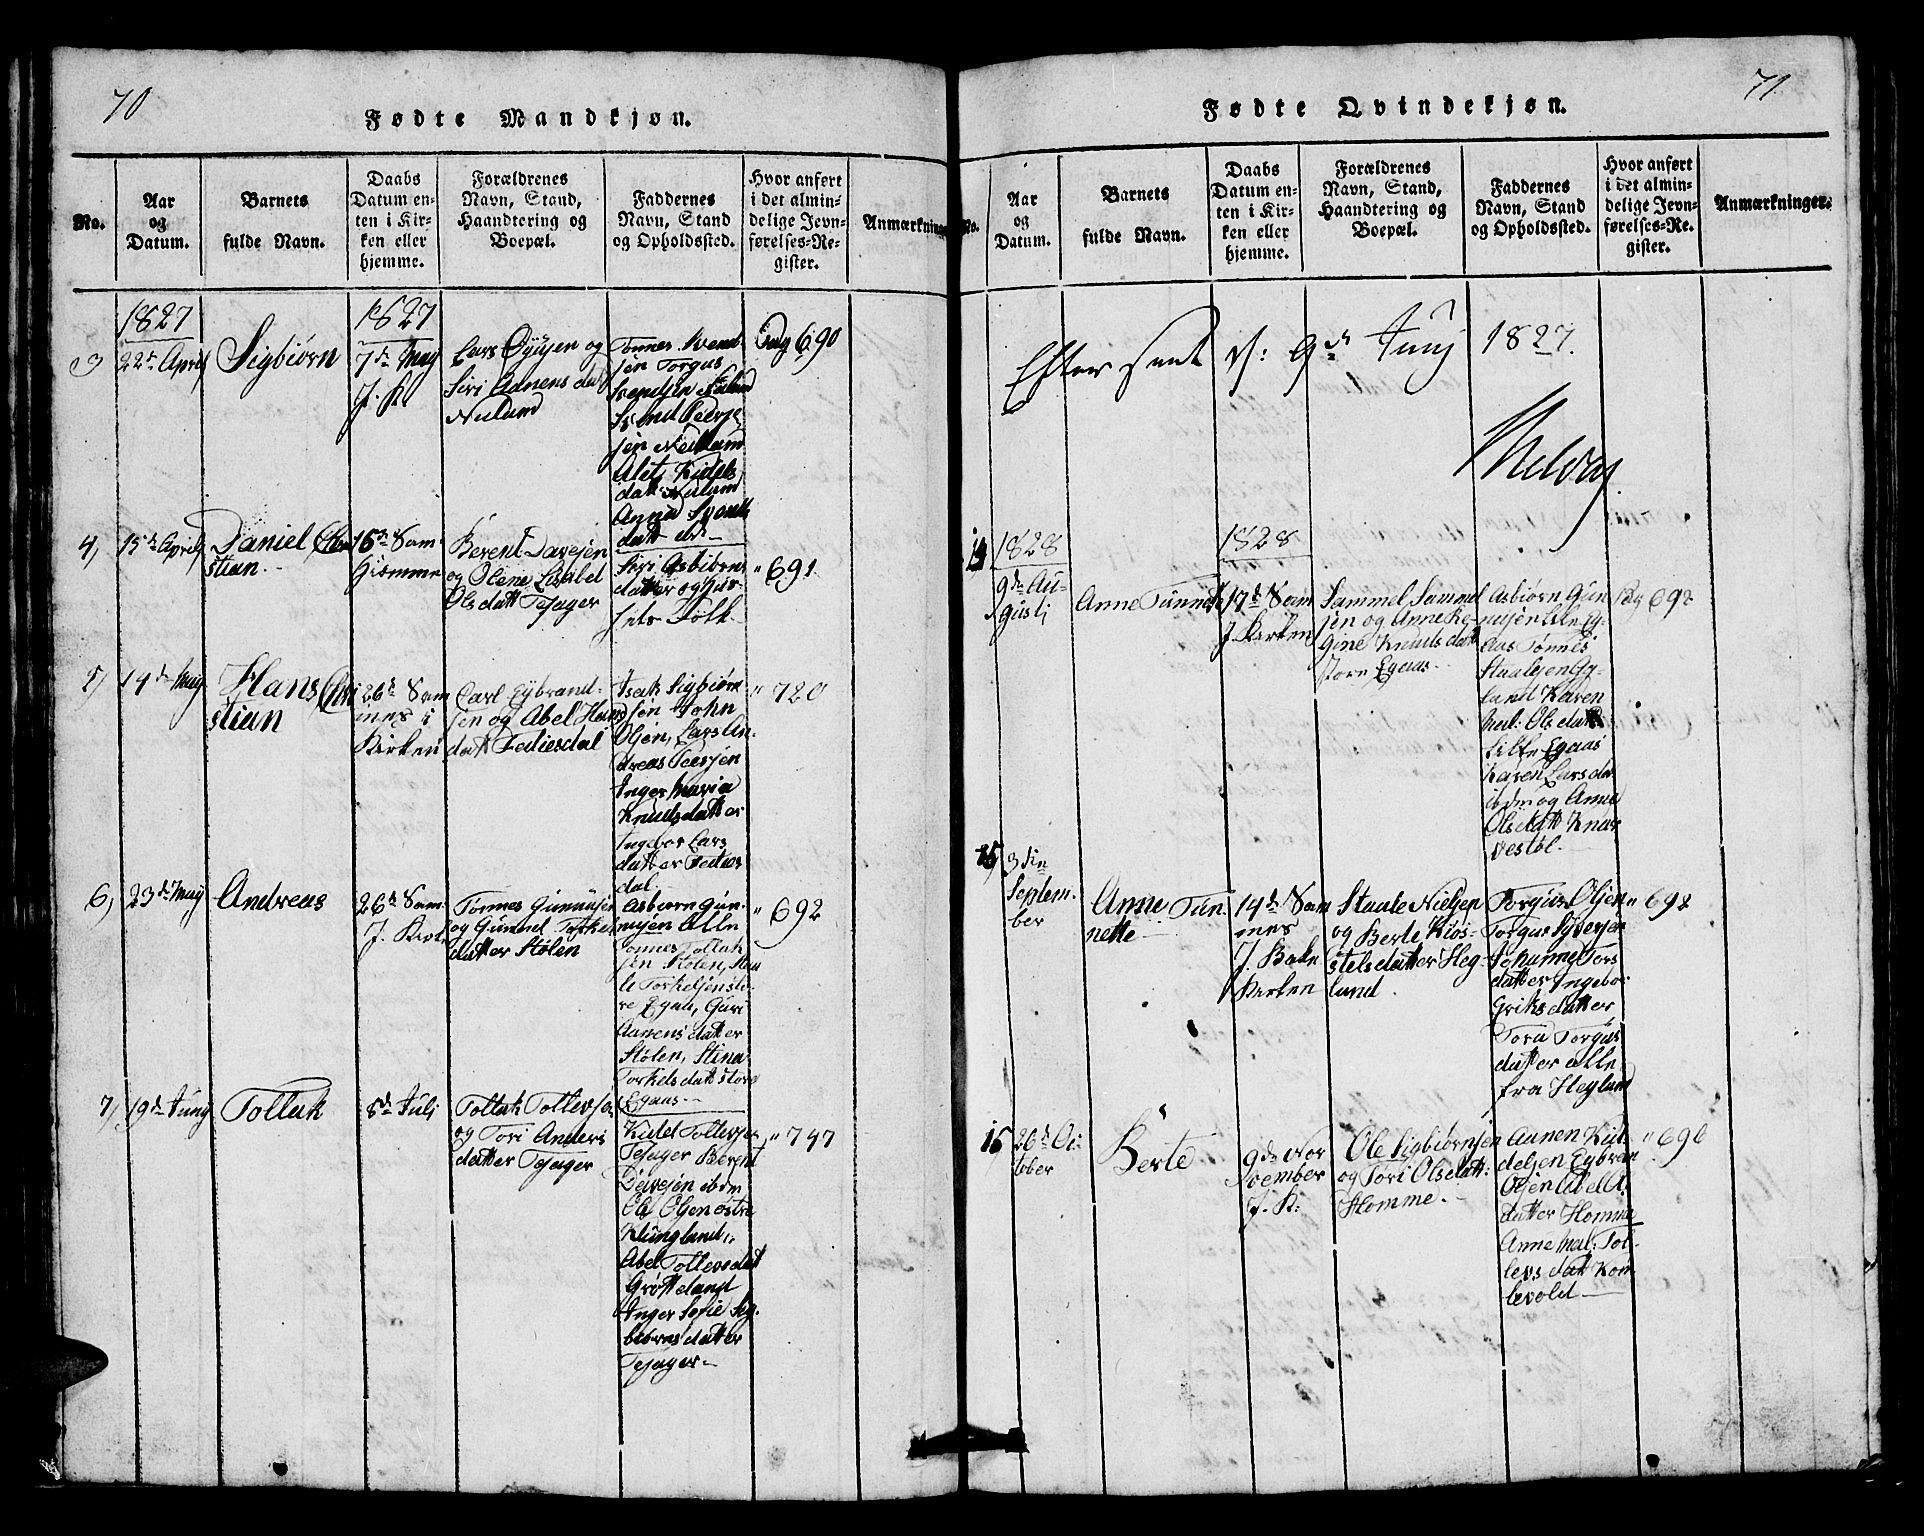 70
Fødte Mandkjøn.
No.
Aar
og
Datum.
Barnets
fulde Navn.
Daabs
Datum en-
ten i Kir-
ken eller
hjemme.
Forældrenes
Navn, Stand,
Haandtering og
Boepæl.
Faddernes
Navn, Stand
og Opholdssted.
Hvor anført
i det almin-
delige Jevn-
førelses-Re-
gister.
Anmærkninge
1827
3
22de April
Sigbiørn
1827
7de May
J. K
Lars Øyysen og
Siri Aanens dat
Neland
Tønnes Svend
sen Torgus
Svendsen Neland
Svend Peders
sen Nedland
Alet Kidels
datt Neland
Anna Svends
datt ibd
Pag 690
4,
15de April
Daniel Chri
stian
16de Sam.
Hiemme
Berent Davejsen
og Olene Lisabel
Olsdatt Tesager
Siri Asbiørns
datter og Huu-
sets Folk
" 691
5,
14de May
Hans Chri
stian
26de Sam
mes i
Kirken
Carl Eybrand-
sen og Abel Hans
datt Fediesdal
Isak Sigbiørn
sen John
Olsen, Lars An-
dreas Peersen
Inger Maria
Knudsdatter
Ingebor Lars
datter Fedies
dal.
" 720
6,
23de May
Andreas
26de Sam.
J. Kirk
Tønnes Gunnusen
og Gunnel Torkels
datter Stølen
Asbiørn Gun-
nusen Alle
Tønnes Tollak
sen Stølen, Staa
le Torkelsen sto-
re Egaa, Guri
Aanens datter
Stølen, Stina
Torkels datt store
Egaas
" 692
7,
19de Juny
Tollak
8de Juli
Tollak Tollevsen
og Tori Anders
datter Tesager
Kidel Tollevsen
Tesager Berent
Davejsen ibdm
Ole Olsen østre
Klungland,
Abel Tollevs datt
Grøtteland
Inger Sofie Sig-
biørnsdatter
Tesager
" 747
71
Fødte Qvindekjøn.
No.
Aar
og
Datum.
Barnets
fulde Navn.
Daabs
Datum en-
ten i Kir-
ken eller
hjemme.
Forældrenes
Navn, Stand,
Haandtering og
Boepæl.
Faddernes
Navn, Stand
og Opholdssted.
Hvor anført
i det almin-
delige Jevn-
førelses-Re-
gister.
Anmærkninger.
Efter seet d: 9de Juny 1827.
14
1828
9de Au-
gusti
Anne Tunnette
1828
17de Sam
J. Kirken
Sammel Sammel
sen og Anne Re-
gine Knuds datt
store Egaas
Asbiørn Gun
nusen Lille Eg-
aas Tønnes
Staalesen Eg-
land Karen
Mal: Olsdatt
Lille Egaas
Karen Lars dat
ibdm og Anne
Olsdatt Knar
vestøl
Pag 692
15,
3die
Septem-
ber
Anne Tun-
nette
14de Sam
mes
J. Bake
Kirken
Staale Nielsen
og Berte Kios-
stelsdatter Heg-
land
Torgus Olsen
Torgus Syversen
Johanne Tors
datter Ingebor
Eriksdatter
Tora Torgus
datter alle
fra Hegland
" 692
16
26de Oc-
tober
Berte
9de No-
vember
J. K:
Ole Sigbiørnsen
og Tori Olsdatt:
Homme
Aanen Kid-
delsen Eybran
Olsen Abel A.
datter Homme
Anne Mal: Tol-
levs datt Kom-
levold
" 696